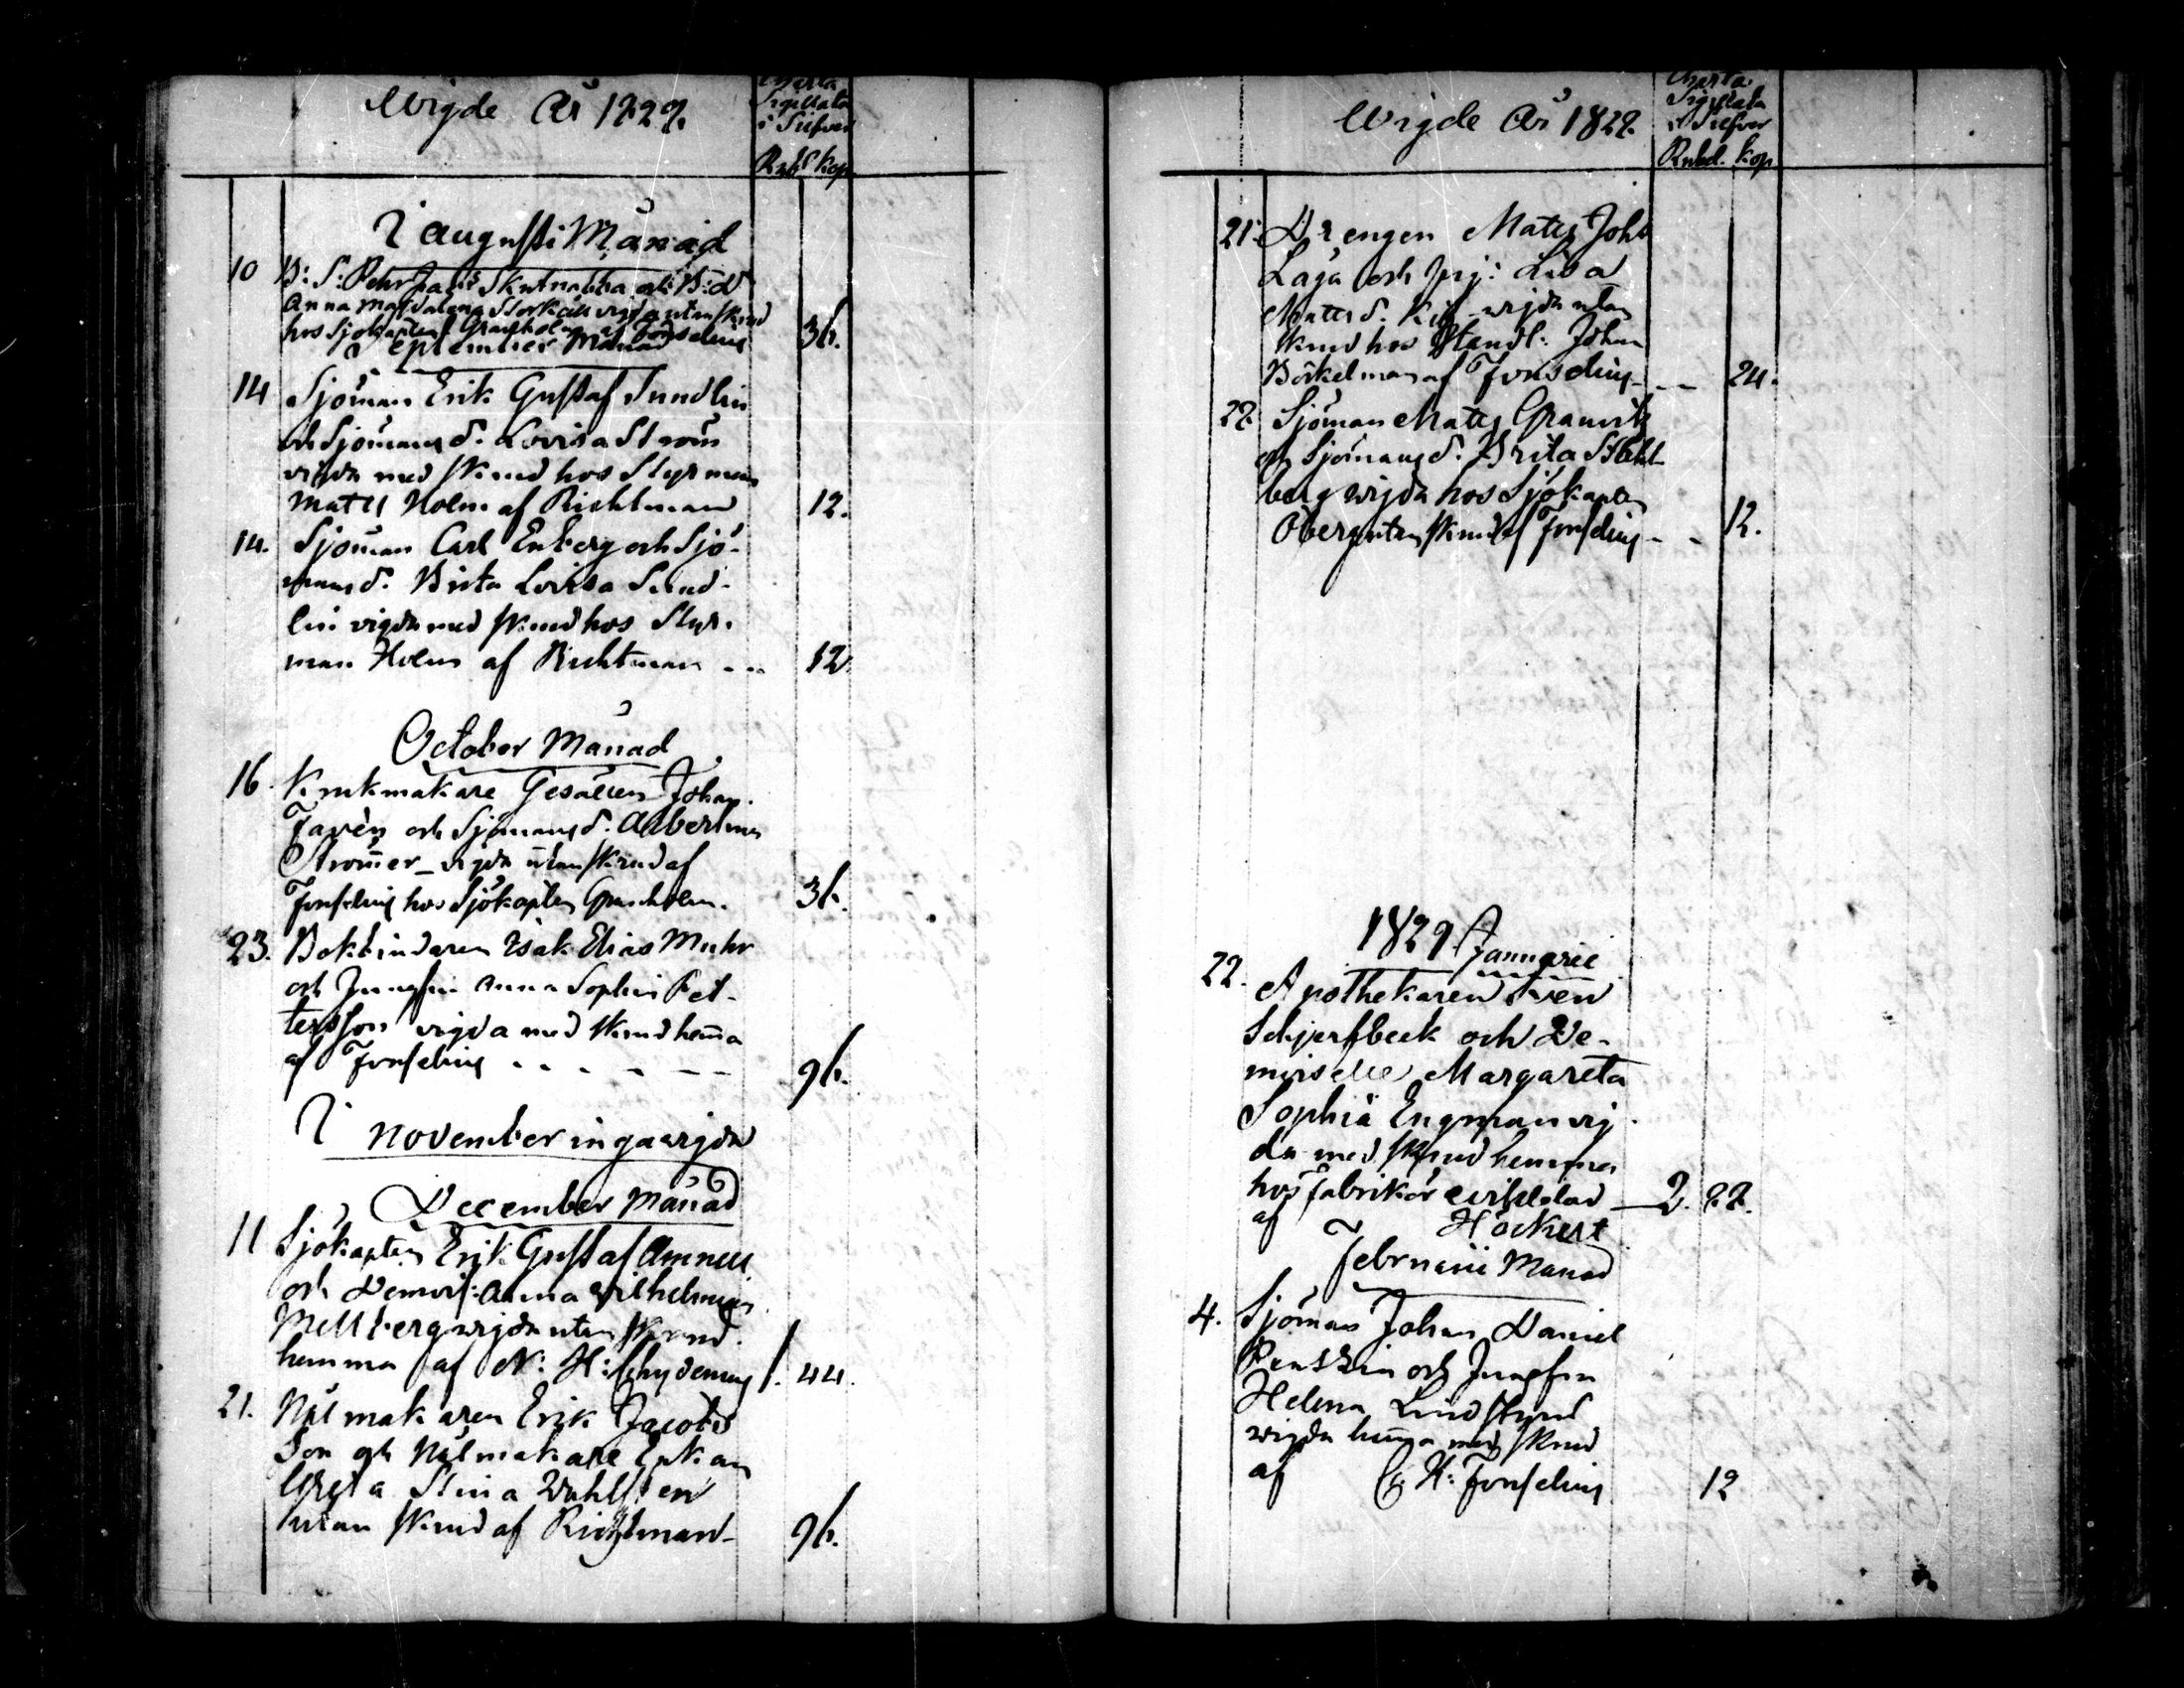 Wigde År 1828.
Charta
Sigillata
i Silfver
Rubl kop
I Augusti Månad
10 B: S: Pehr Jacobs Skutnabba och B: d
Anna Magdalena Storkåll vigda utan skrud
hos Sjökapten Granholm af Forselius 36.
September Månad
14 Sjöman Erik Gustaf Sundlin
och Sjömans d. Lovisa Ström
vigda med skrud hos Styrman
Matts Holm af Richtman 12.
14. Sjöman Carl Enberg och Sjö-
mans d. Brita Lovisa Sund-
lin vigda med skrud hos Styr-
man Holm af Richtman - - 12.
October Månad
16. Krukmakare Gesällen Johan
Favén och Sjömans d. Albertina
Strömer - vigda utan skrud af
Forselius hos Sjökapten Granholm. 36.
23. Bokbindaren Isak Elias Muhr
och Jungfru Anna Sophia Pet-
tersson vigda med skrud hema
af Forselius - - - - - 96.
I November inga vigda
December Månad
11 Sjökapten Erik Gustaf Amnell
och Demois: Anna Wilhelmina
Mellberg vigda utan skrud
hemma af N: H: Chydenius 1. 44.
21. Nålmakaren Erik Jacobs
Son och Nålmakare Enkan
Greta Stina Wahlsten
utan skrud af Richtman - 96.
Wigde År 1828.
Charta
Sigillata
i Silfver
Rubl. kop
21. Drengen Matts Johs
Laga och pig: Lisa
Matts d. vigda utan
skrud hos Handl: Johan
Börkelman af Forselius - - - 24.
28. Sjöman Matts Granvik
och Sjömans d. Brita Stahl
berg vigda hos Sjökapten
Öberg utan skrud af Forselius - - 12.
1829 Januarii
22. Apothekaren Sven
Schjerfbeck och De-
moiselle Margareta
Sophia Engman vig
da med skrud hemma
hos fabrikör - 2. 88.
af Höckert
Februarii Manad
4. Sjöman Johan Daniel
Rentzin och Jungfru
Helena Lindstrand
vigda hema med skrud
af C: H: Forselius 12